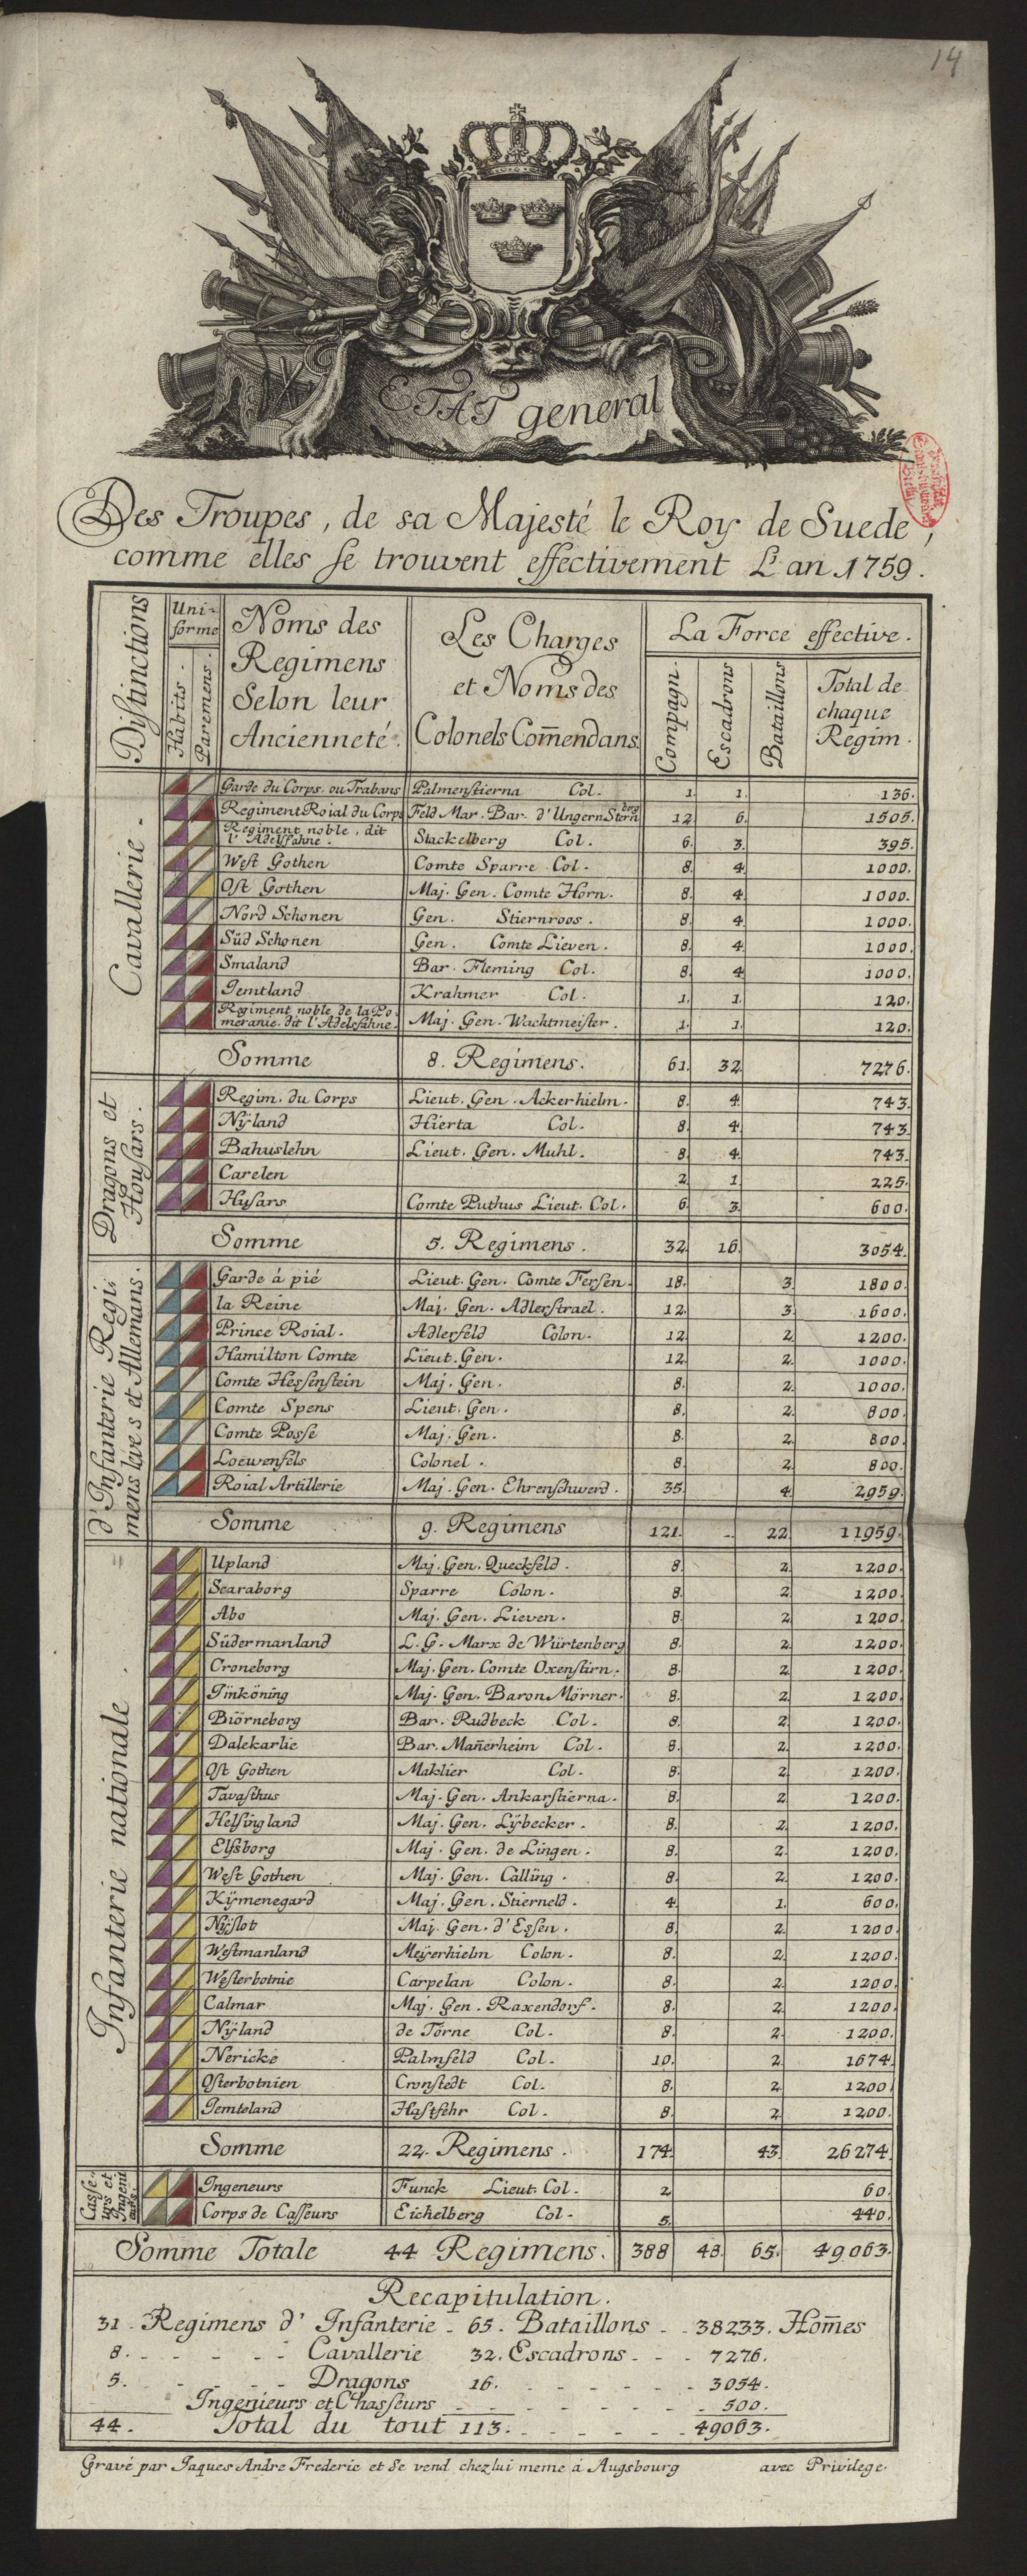 14
ETAT general
Des Troupes, de sa Majesté le Roy de Suede,
comme elles se trouvent effectivement L'an 1759.
Distinctions
Uni-
forme
Habits.
Paremens.
Noms des
Regimens
Selon leur
Ancienneté.
Les Charges
et Noms des
Colonels Com̄endans.
La Force effective.
Compagn.
Escadrons
Bataillons
Total de
chaque
Regim.
Cavallerie.
Garde du Corps. ou Trabans Palmenstierna Col. 1. 1. 136.
Regiment Roial du Corps Feld Mar. Bar. d'Ungern Sternberg 12 6. 1505.
Regiment noble, dit
l'Adelsfahne. Stackelberg Col. 6. 3. 395.
West Gothen Comte Sparre Col. 8. 4. 1000.
Ost Gothen Maj. Gen. Comte Horn. 8. 4 1000.
Nord Schonen Gen. Stiernroos. 8. 4. 1000.
Süd Schonen Gen. Comte Lieven. 8. 4. 1000.
Smaland Bar. Fleming Col. 8. 4 1000.
Jemtland Krahmer Col. 1. 1. 120.
Regiment noble de la Po-
meranie dit l'Adelsfahne. Maj. Gen. Wachtmeister. 1. 1. 120.
Somme 8. Regimens. 61. 32. 7276.
Dragons et
Housars.
Regim. du Corps Lieut. Gen. Ackerhielm. 8. 4. 743.
Nÿland Hierta Col. 8. 4. 743.
Bahuslehn Lieut. Gen. Muhl. 8 4. 743.
Carelen 2 1. 225.
Husars Comte Puthus Lieut. Col. 6. 3. 600.
Somme 5. Regimens. 32. 16. 3054.
d'Infanterie Regi-
mens leves et Allemans.
Garde á pié Lieut. Gen. Comte Fersen. 18. 3. 1800.
la Reine Maj. Gen. Adlerstrael. 12. 3. 1600.
Prince Roial. Adlerfeld Colon. 12. 2. 1200.
Hamilton Comte Lieut. Gen. 12. 2. 1000.
Comte Hessenstein Maj. Gen. 8. 2. 1000.
Comte Spens Lieut. Gen. 8. 2. 800.
Comte Posse Maj. Gen. 8. 2. 800.
Loewenfels Colonel. 8. 2. 800.
Roial Artillerie Maj. Gen. Ehrenschwerd. 35. 4. 2959.
Somme 9. Regimens 121. 22. 11959.
Infanterie nationale.
Upland Maj. Gen. Queckfeld. 8. 2. 1200.
Scaraborg Sparre Colon. 8. 2. 1200.
Abo Maj. Gen. Lieven. 8. 2. 1200.
Südermanland L. G. Marx de Würtenberg 8. 2. 1200.
Croneborg Maj. Gen. Comte Oxenstirn. 8. 2. 1200.
Jinköning Maj. Gen. Baron Mörner. 8. 2. 1200.
Biörneborg Bar. Rudbeck Col. 8. 2. 1200.
Dalekarlie Bar. Man̄erheim Col. 8. 2. 1200.
Ost Gothen Maklier Col. 8. 2. 1200.
Tavasthus Maj. Gen. Ankarstierna. 8. 2. 1200.
Helsingland Maj. Gen. Lÿbecker. 8. 2. 1200.
Elfsborg Maj. Gen. de Lingen. 8. 2. 1200.
West Gothen Maj. Gen. Calling. 8. 2. 1200.
Kÿmenegard Maj. Gen. Stierneld. 4. 1. 600.
Nÿslot Maj. Gen. d'Essen. 8. 2. 1200.
Westmanland Meÿerhielm Colon. 8. 2. 1200.
Westerbotnie Carpelan Colon. 8. 2. 1200.
Calmar Maj. Gen. Raxendorf. 8. 2. 1200.
Nÿland de Torne Col. 8. 2. 1200.
Nericke Palmfeld Col. 10. 2. 1674.
Osterbotnien Cronstedt Col. 8. 2. 1200.
Jemteland Hastfehr Col. 8. 2. 1200.
Somme 22. Regimens. 174. 43. 26274.
Casse-
urs et
Ingeni
eurs.
Ingeneurs Funck Lieut. Col. 2. 60.
Corps de Casseurs Eichelberg Col. 5. 440.
Somme Totale 44 Regimens. 388 48. 65. 49063.
Recapitulation.
31. Regimens d'Infanterie - 65. Bataillons - - 38233. Hom̄es
8. - - - - - Cavallerie 32. Escadrons - - - 7276.
5. - - - - Dragons 16. - - - - - - 3054.
Ingenieurs et Chasseurs - - - - - - - - 500.
44. Total du tout 113. - - - - - - 49063.
Gravé par Jaques Andre Frederic et Se vend chez lui meme á Augsbourg avec Privilege.